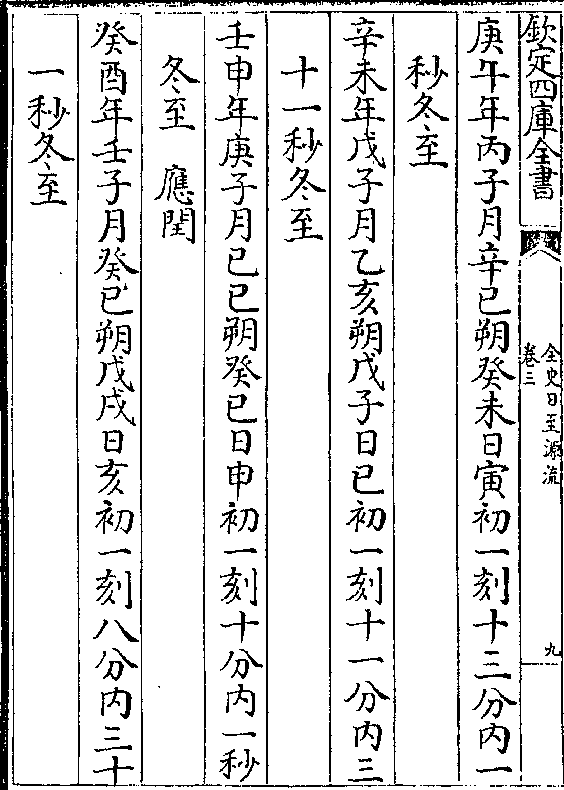 欽定四庫全書
全史日至源流
卷三
九
庚午年丙子月辛巳朔癸未日寅初一刻十三分内一
秒冬至
辛未年戊子月乙亥朔戊子日巳初一刻十一分内三
十一秒冬至
壬申年庚子月己巳朔癸巳日申初一刻十分内一秒
冬至　應閏
癸酉年壬子月癸巳朔戊戌日亥初一刻八分内三十
一秒冬至